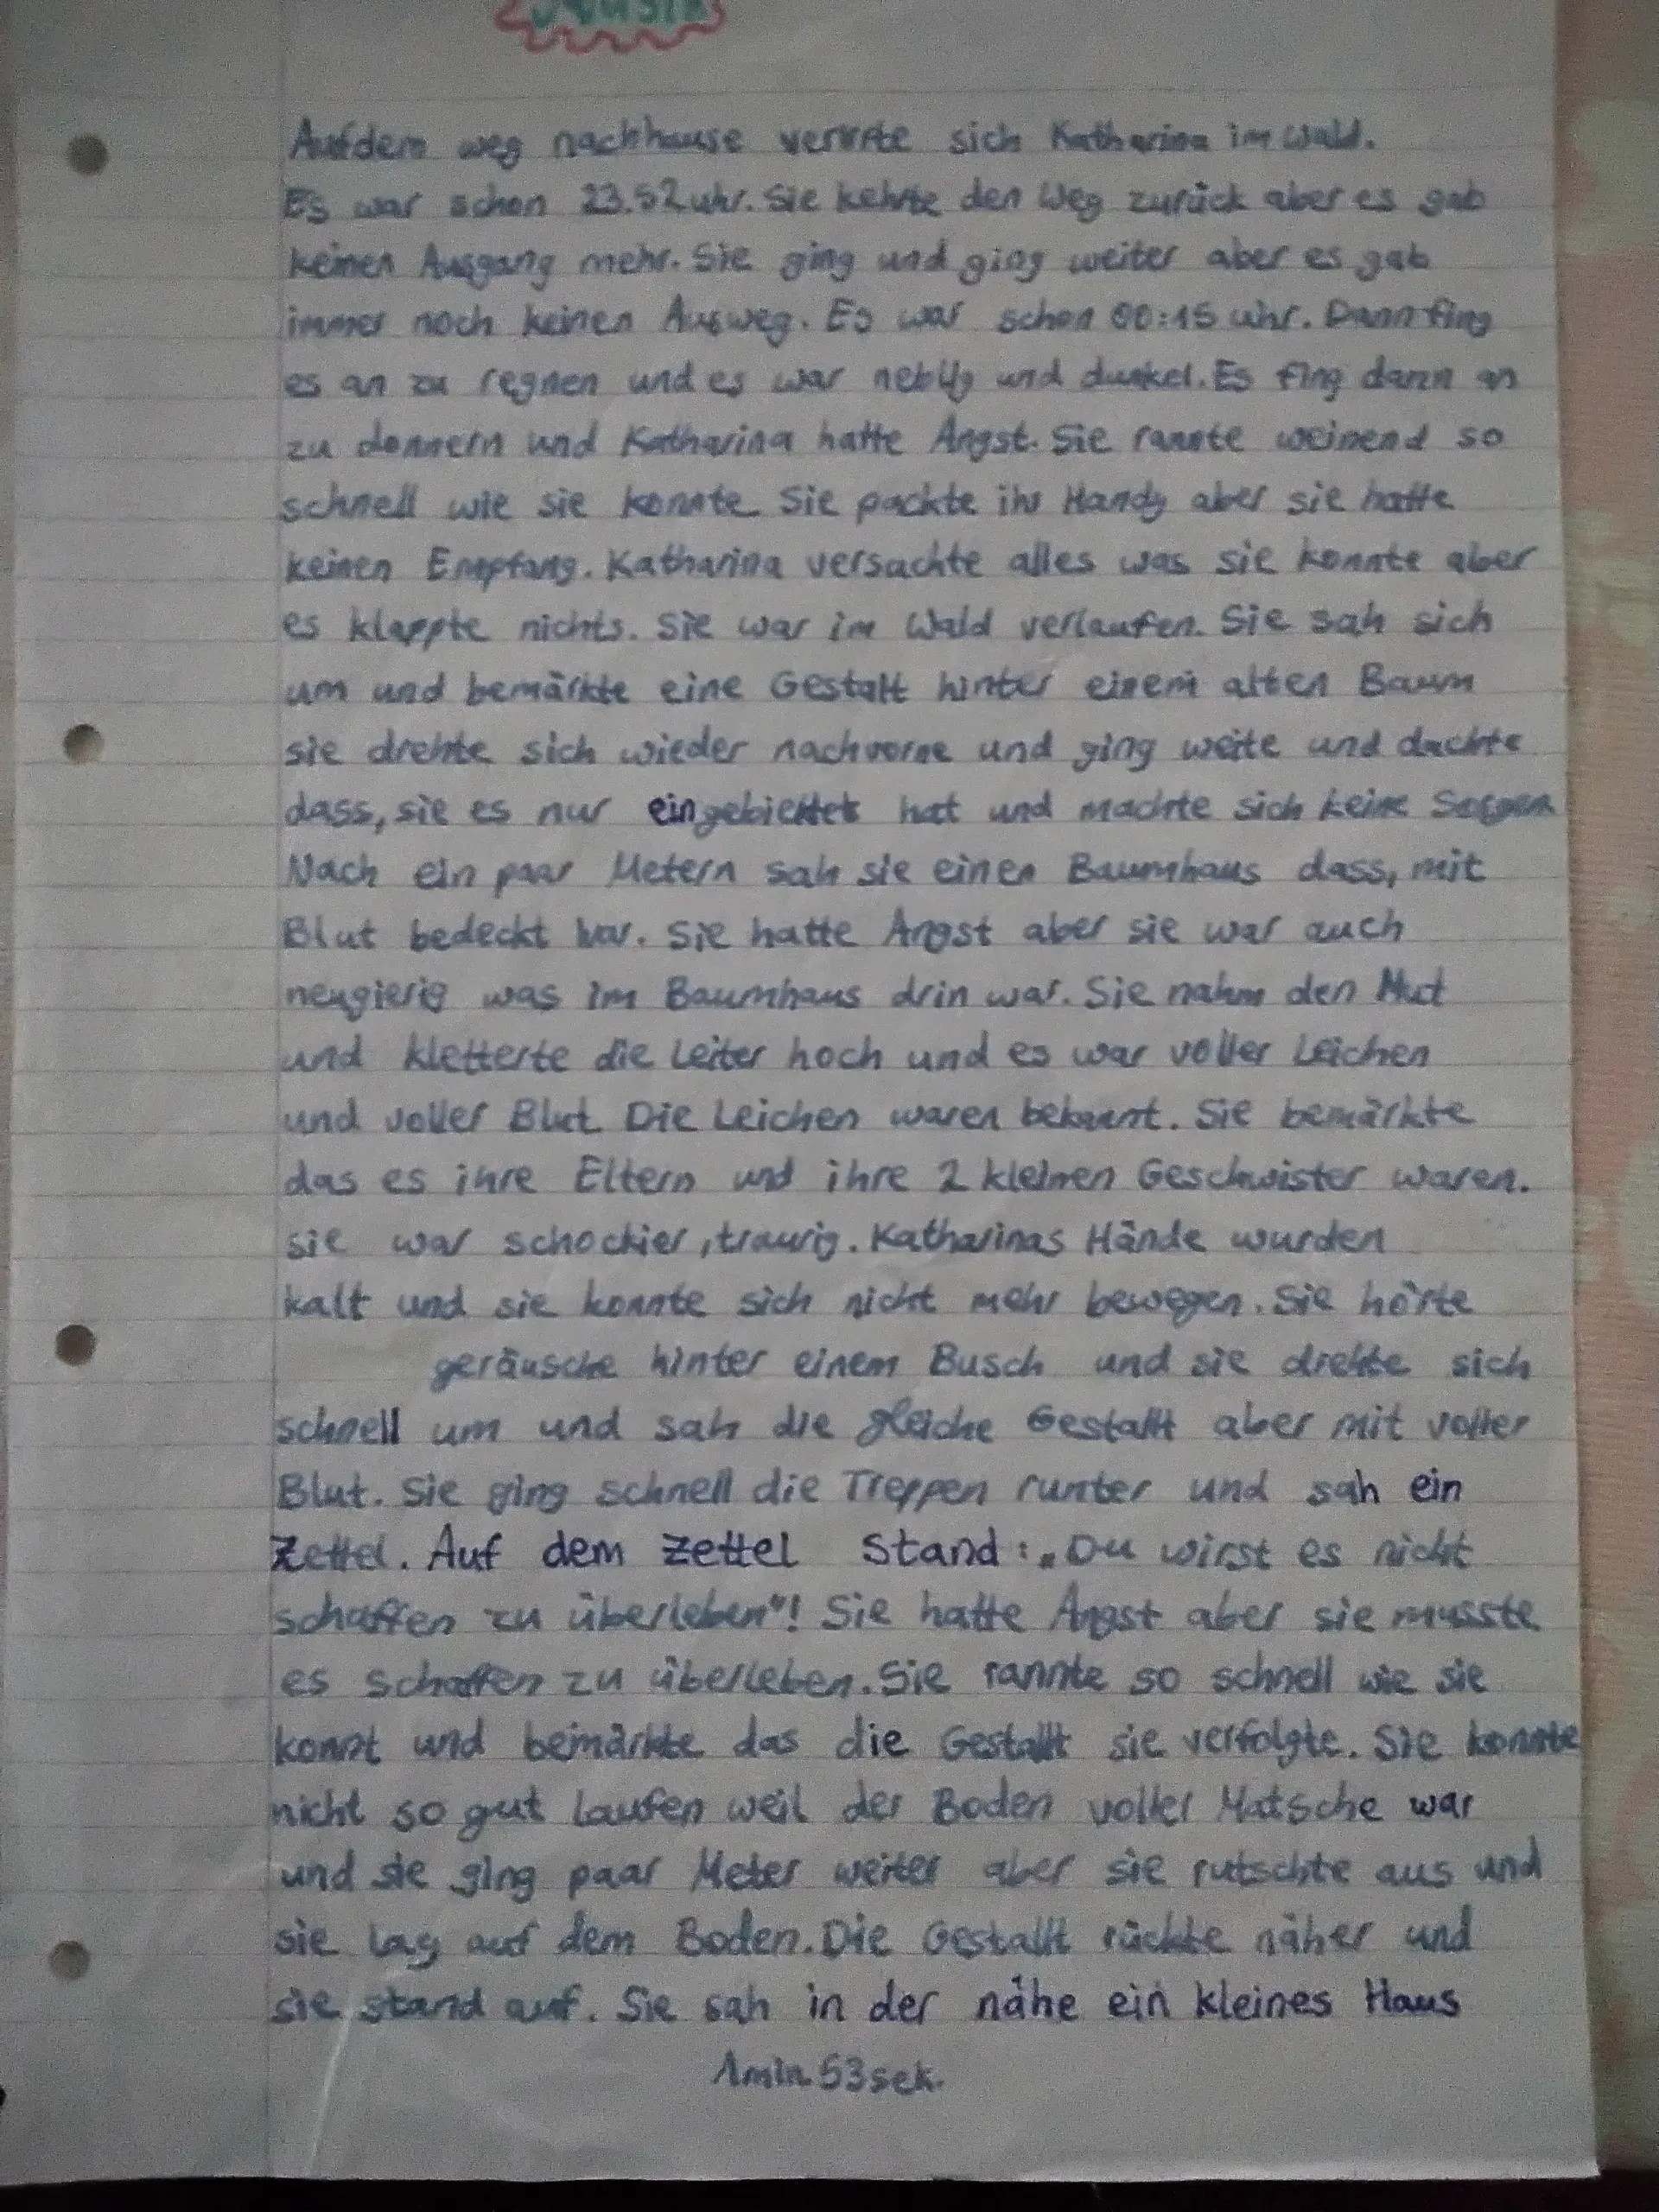 Aufdem weg nachhause verirrte sich Katharina im Wald.
Es war schon 23.52 uhr. Sie kehrte den Weg zurück aber es gab
keinen Ausgang mehr. Sie ging und ging weiter aber es gab
immer noch keinen Ausweg. Es war schon 00:15 uhr. Dann fing
es an zu regnen und es war neblig und dunkel. Es fing dann an
zu donnern und Katharina hatte Angst. Sie rannte weinend so
schnell wie sie konnte. Sie packte ihr Handy aber sie hatte
keinen Empfang. Katharina versuchte alles was sie konnte aber
es klappte nichts. Sie war im Wald verlaufen. Sie sah sich
um und bemärkte eine Gestalt hinter einem alten Baum
sie drehte sich wieder nachvorne und ging weite und dachte
dass, sie es nur hat und machte sich keine Sorgen
Nach ein paar Metern sah sie einen Baumhaus dass, mit
Blut bedeckt war. Sie hatte Angst aber sie war auch
neugierig was im Baumhaus drin war. Sie nahm den Mut
und kletterte die Leiter hoch und es war voller Leichen
und voller Blut. Die Leichen waren bekannt. Sie bemärkte
das es ihre Eltern und ihre 2 kleinen Geschwister waren.
sie war schockier, traurig. Katharinas Hände wurden
kalt und sie konnte sich nicht mehr bewegen. Sie hörte
geräusche hinter einem Busch und sie drehte sich
schnell um und sah die gleiche Gestallt aber mit voller
Blut. Sie ging schnell die Treppen runter und sah ein
Zettel. Auf dem Zettel Stand: „Du wirst es nicht
schaffen zu überleben"! Sie hatte Angst aber sie musste
es schaffen zu überleben. Sie rannte so schnell wie sie
konnt und bemärkte das die Gestallt sie verfolgte. Sie konnte
nicht so gut laufen weil der Boden voller Matsche war
und sie ging paar Meter weiter aber sie rutschte aus und
sie lag auf dem Boden. Die Gestallt rückte näher und
sie stand auf. Sie sah in der nähe ein kleines Haus
1min. 53sek.